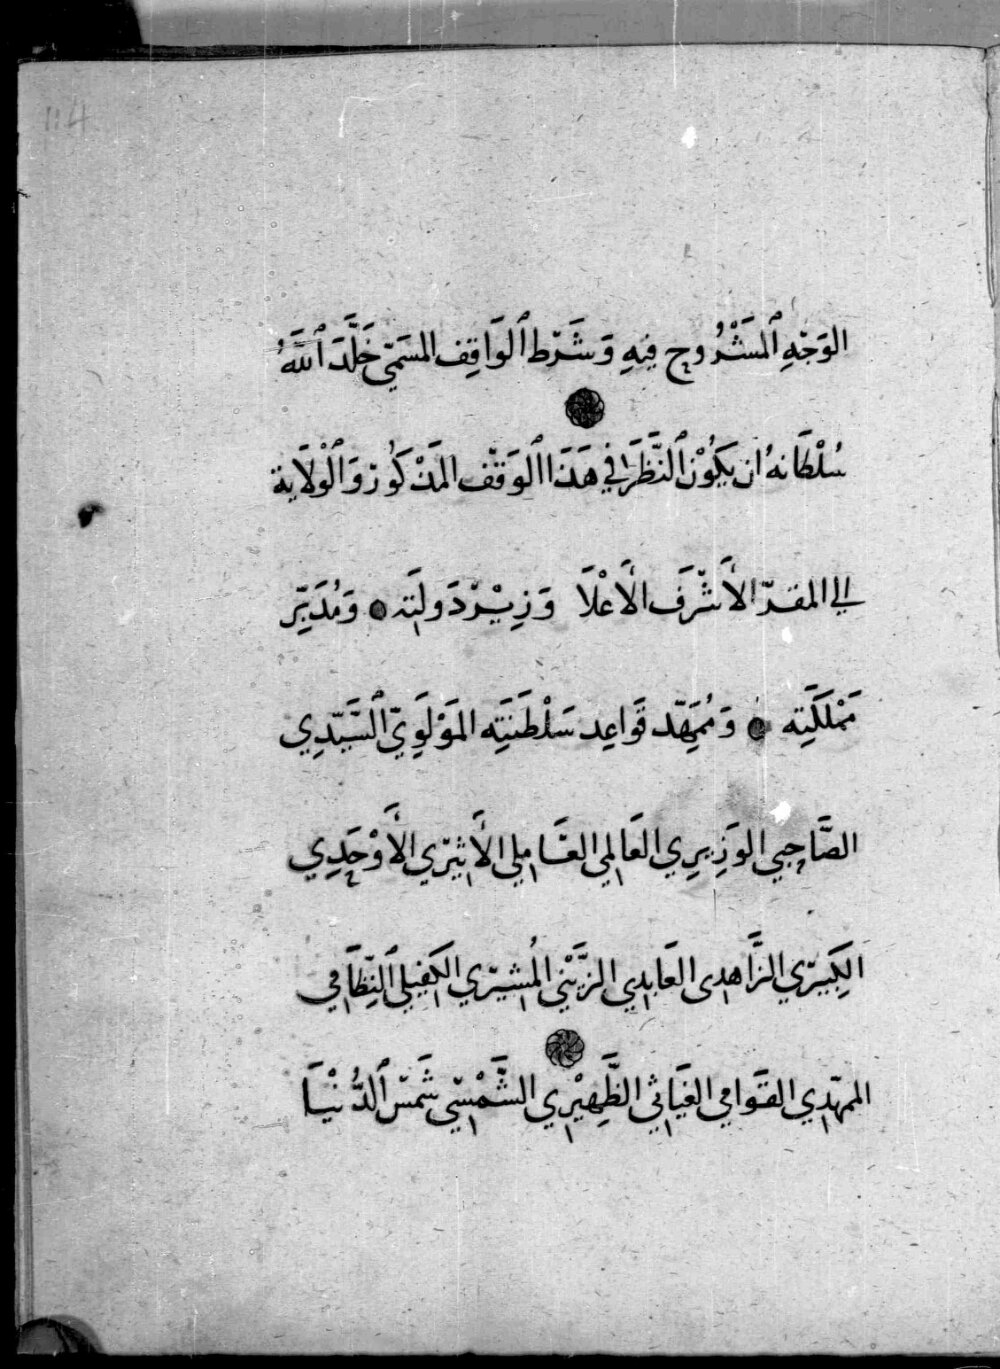 114
الوَجْهِ ٱلمَشْرُوح فِيهِ وَشَرَط ٱلوَاقِف المسَمّي خَلَّدَ ٱللَّهُ
سُلْطَانهُ ان يَكُوْن ٱلنَّظَرَ في هَذَا ٱلوَقْف المَذْكُوْر وَٱلْوِلَاية
الي المقرّ الأَشْرَف الأَعْلَا وَزِيْر دَولَتِه وَمُدَبِّر
مَمْلَكَتِه وَمُمَهّد قَوَاعِد سَلْطَنَتِه المَوْلَوِيّ ٱلسَّيّدِي
الصَّاحِبي الوَزِيرِي العَالِمي العَامِلي الأَثِيْري الأَوْحَدِي
الكَبِيْري الزَّاهِدى العَابِدِي الزَّيْنِي المُشِيْري الكَفِيْلي ٱلنِّظَامي
الممهّدِي القَوَامي الغِيَاثي الظَّهِيْرِي الشَّمْسِي شَمْس ٱلدُّنْيَا